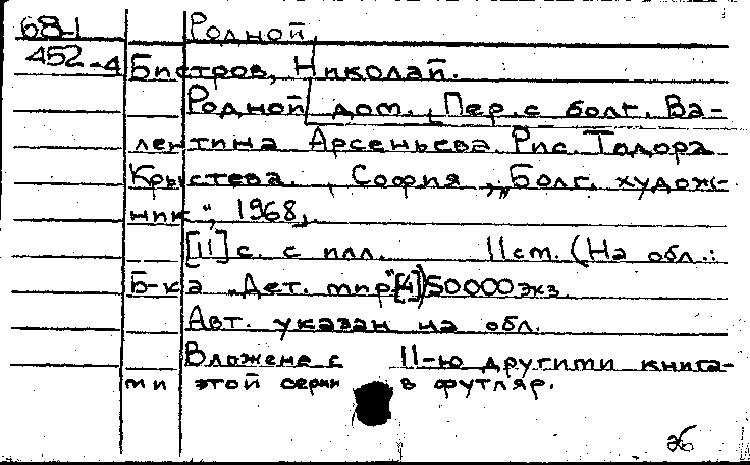 68-1 Родной
452-4 Бистров, Николай.
Родной дом. Пер. с болг. Ва-
лентина Арсеньева. Рис. Тодора
Крыстева. , София, „Болг. худож-
ник", 1968,.
[11] с. с илл. 11 см. (На обл.:
Б-ка „Дет. мир" [4]) 50000 экз.
Авт. указан на обл.
Вложена с 11-ю другими книга-
ми этой серии в футляр.